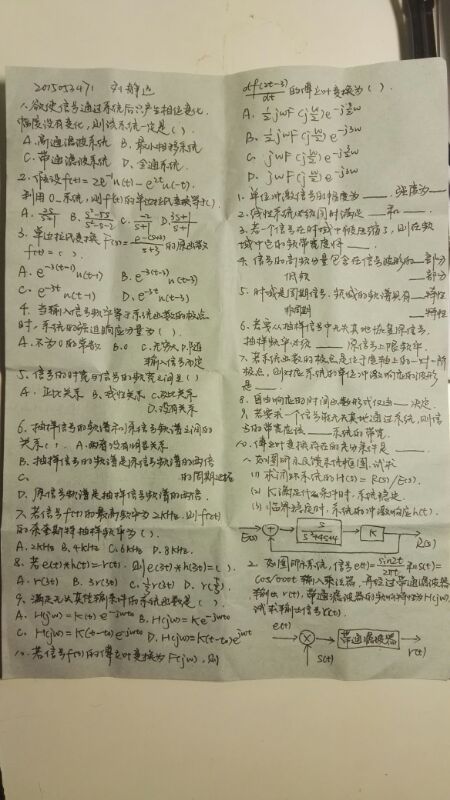 2015053471 刘静远
1、欲使信号通过系统后只产生相位变化,
幅度没有变化,则该系统一定是( )。
A、高通滤波系统 B、最小相移系统
C、带通滤波系统 D、全通系统
2、假设f(t)=2e^{-t}u(t)-e^{2t}u(-t),
利用0_系统,则f(t)的单边拉氏变换等于( )
3、单边拉氏变换F(s)=e^{-(s+3)}/(s+3)的原函数
f(t)=( )。
A、e^{-3(t-1)}u(t-1) B、e^{-3(t-3)}u(t-3)
C、e^{-3t}u(t-1) D、e^{-3t}u(t-3)
4、当输入信号频率等于系统函数的极点
时,系统的强迫响应分量为( )。
A、不为0的常数 B、0 C、无穷大 D、随
输入信号而定
5、信号的时宽与信号的频宽之间呈( )
A、正比关系 B、线性关系 C、反比关系
D、没有关系
6、抽样信号的频谱和原信号频谱之间的
关系( )。A、两者没有明显关系
B、抽样信号的频谱是原信号频谱的两倍
C、 的周期延拓
D、原信号频谱是抽样信号频谱的两倍。
7、若信号f(t)的最高频率为2kHz,则f(t)
的奈奎斯特抽样频率为( )。
A、2kHz B、4kHz C、6kHz D、8kHz.
8、若e(t)*h(t)=r(t),则e(3t)*h(3t)=( ).
A、r(3t) B、3r(3t) C、1/3 r(3t) D、r(t/3)
9、满足无失真传输条件的系统函数是( )
A、H(jw)=K(t)e^{-jwto} B、H(jw)=Ke^{-jwto}
C、H(jw)=K(t-to)e^{-jwto} D、H(jw)=K(t-to)e^{jwto}
10、若信号f(t)的傅立叶变换为F(jw),则
df(2t-3)/dt 的傅立叶变换为( )。
A、1/2 jwF(j w/2)e^{-j3/2w}
B、1/2 jwF(j w/2)e^{-j3w}
C、jwF(j w/2)e^{-j3/2w}
D、jwF(j w/2)e^{-j3w}
1、单位冲激信号的幅度为____,强度为____
2、线性系统性质同时满足____和____.
3、若一个信号在时域中被压缩了,则在频
域中它的频带宽度将____.
4、信号的高频分量包含在信号波形的____部分
低频 ____部分
5、时域是周期信号,频域的频谱具有____特性
非周期 ____特性
6、若要从抽样信号中无失真地恢复原信号,
抽样频率必须____原信号上限频率.
7、若系统函数的极点是位于虚轴上的一对一阶
极点,则对应系统的单位冲激响应的波形
是____.
8、自由响应的时间函数形式仅由____决定.
9、若要求一个信号能无失真地通过系统,则信
号的带宽应该____系统的带宽.
10、傅立叶变换存在的充分条件是____
1、如图所示反馈系统框图,试求
(1) 求闭环系统的H(s)=R(s)/E(s).
(2) K满足什么条件时,系统稳定.
(3) 临界稳定时,系统的冲激响应h(t).
E(s) + s/(s²+4s+4) K R(s)
2、如图所示系统,信号e(t)=sin2t/2πt,和s(t)=
cos1000t输入乘法器,再经过带通滤波器
输出r(t),带通滤波器的频响特性为H(jw),
试求输出信号r(t).
e(t)
× 带通滤波器 r(t)
s(t)